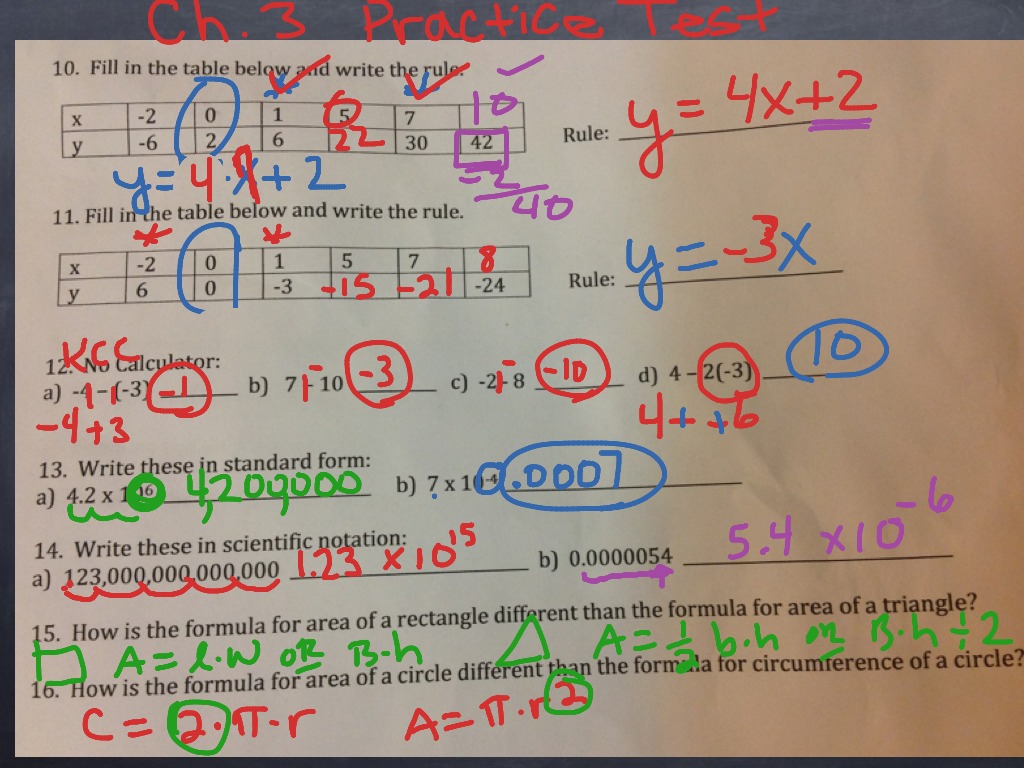 Ch. 3 Practice Test
10. Fill in the table below and write the rule.
x -2 0 1 5 7 10
y -6 2 6 22 30 42
Rule: y = 4x+2
y = 4·x+2
-2
40
11. Fill in the table below and write the rule.
x -2 0 1 5 7 8
y 6 0 -3 -15 -21 -24
Rule: y = -3x
KCC
12. No Calculator:
a) -4 - (-3) -1 b) 7 - 10 -3 c) -2 - 8 -10 d) 4 - 2(-3) 10
-4+3 4+ +6
13. Write these in standard form:
a) 4.2 x 10^6 4,200,000 b) 7 x 10^-4 .0007
14. Write these in scientific notation:
a) 123,000,000,000,000 1.23 x 10^15 b) 0.0000054 5.4 x 10^-6
15. How is the formula for area of a rectangle different than the formula for area of a triangle?
A = l·w OR B·h A = 1/2 b·h OR B·h ÷ 2
16. How is the formula for area of a circle different than the formula for circumference of a circle?
C = 2·π·r A = π·r^2